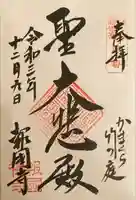 奉拝
かまくら
竹の庭
聖大悲殿
令和三年
十二月九日
報國寺